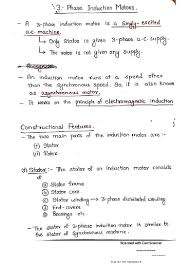 3-Phase Induction Motors.
- A 3-phase induction motor is a singly-excited
a.c machine.
↳ Only Stator is given 3-phase a.c supply.
↳ The rotor is not given any supply.
- An induction motor runs at a speed other
than the synchronous speed. So, it is also known
as asynchronous motor.
- It works on the principle of electromagnetic induction
Constructional Features.
- The two main parts of the induction motor are :-
(i) Stator
(ii) Stator
(i) Stator :- The stator of an induction motor consists
of
→ Stator frame
→ Stator core
→ Stator winding → 3-phase distributed winding
→ End-covers
→ Bearings etc
- The stator of 3-phase induction motor is similar to
the stator of synchronous machine.
Scanned with CamScanner